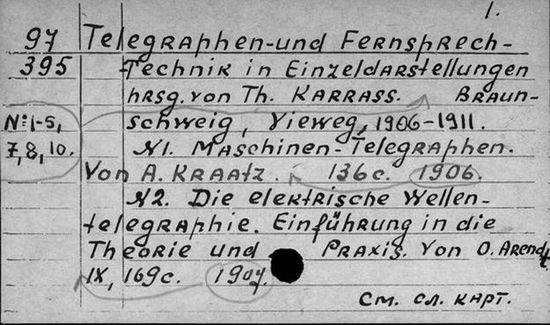 1.
97 Telegraphen-und Fernsprech-
395 Technik in Einzeldarstellungen
hrsg. von Th. Karrass. Braun-
№ 1-5, schweig, Vieweg, 1906-1911.
7, 8, 10. N1. Maschinen-Telegraphen.
Von A. Kraatz. 136 с. 1906.
N2. Die elektrische Wellen-
telegraphie. Einführung in die
Theorie und Praxis. Von O. Arendt.
IX, 169 с. 1907.
См. сл. карт.